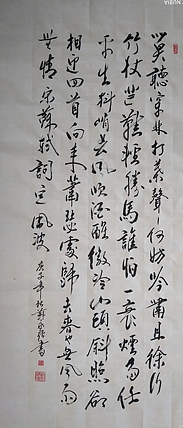 莫聽穿林打葉聲何妨吟嘯且徐行
竹杖芒鞋輕勝馬誰怕一蓑煙雨任
平生料峭春風吹酒醒微冷山頭斜照卻
相迎回首向來蕭瑟處歸去也無風雨
也無情宋蘇軾詞定風波 庚子年書